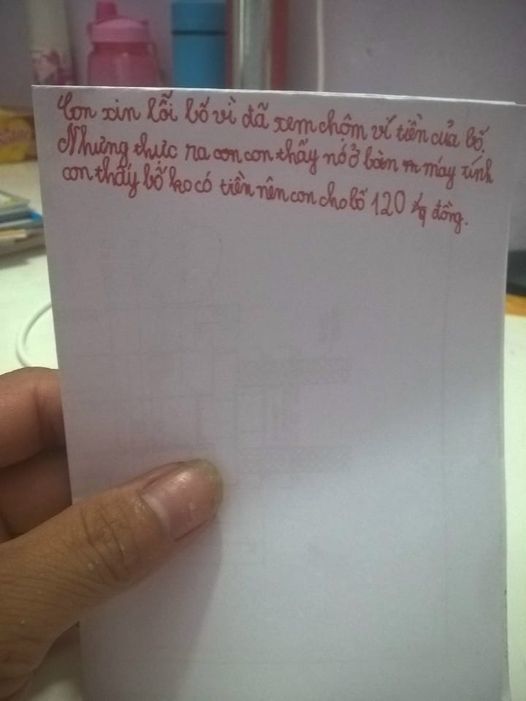 Con xin lỗi bố vì đã xem chộm ví tiền của bố.
Nhưng thực ra con con thấy nó ở bàn m máy tính
con thấy bố ko có tiền nên con cho bố 120 đồng.